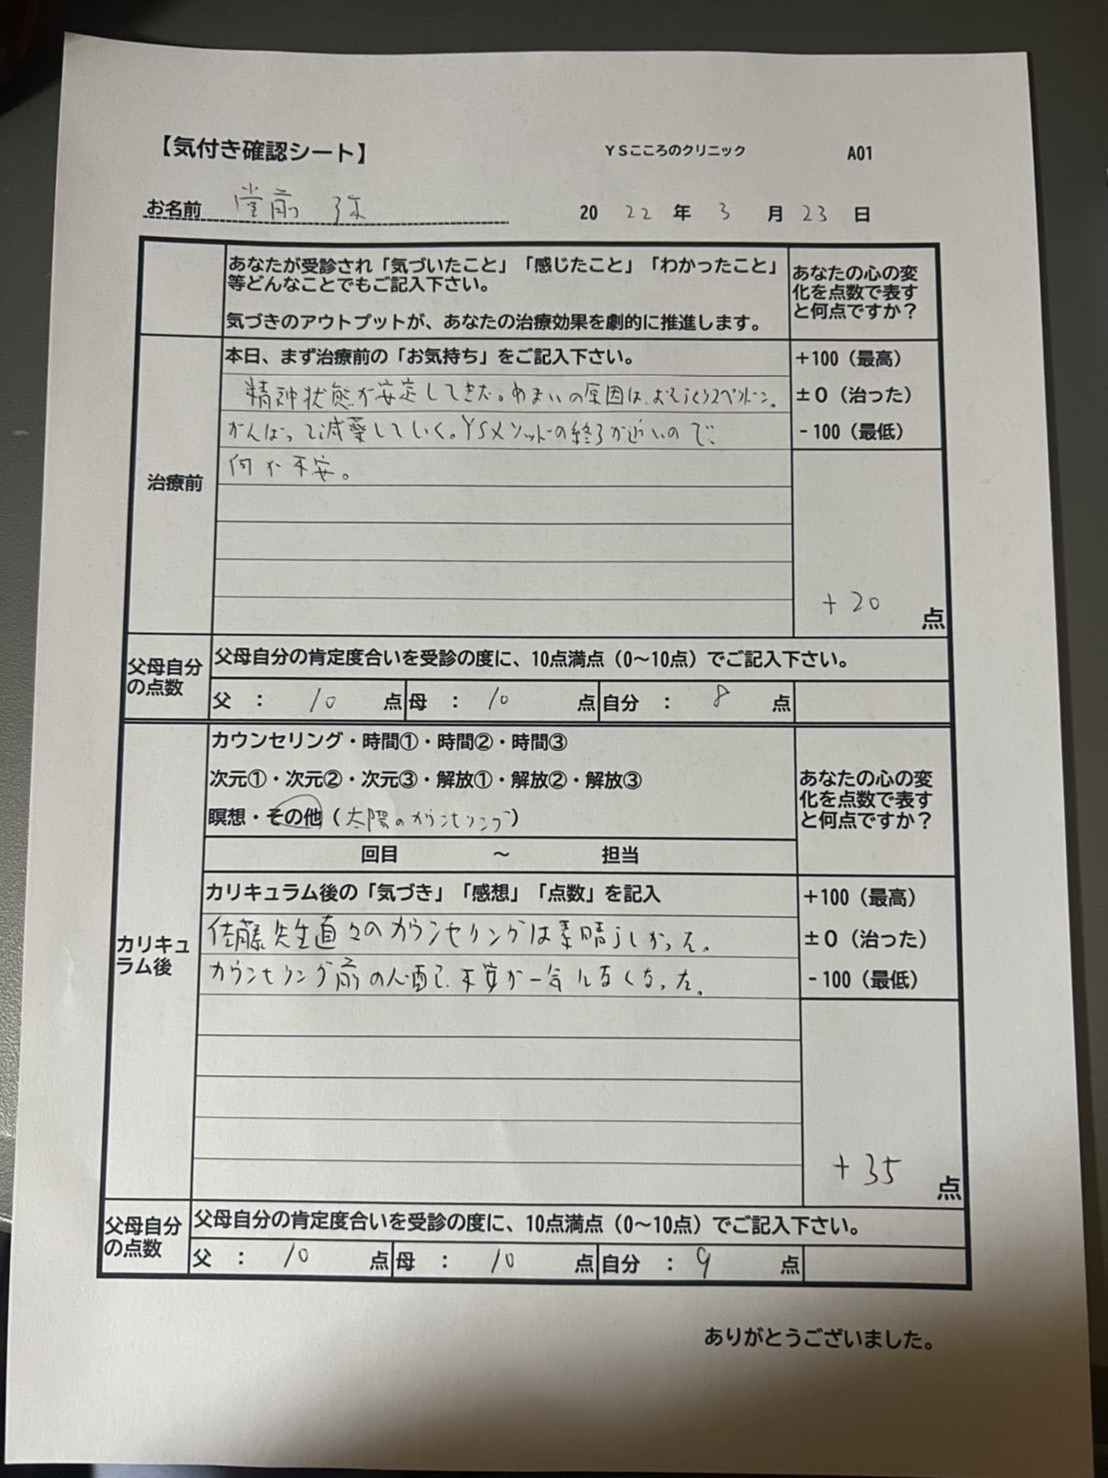 【気付き確認シート】 YSこころのクリニック A01
お名前 堂前 弥 20 22 年 3 月 23 日
あなたが受診され「気づいたこと」「感じたこと」「わかったこと」
等どんなことでもご記入下さい。
気づきのアウトプットが、あなたの治療効果を劇的に推進します。
あなたの心の変
化を点数で表す
と何点ですか？
治療前
本日、まず治療前の「お気持ち」をご記入下さい。
精神状態が安定してきた。めまいの原因は、おそらくリスペリドン。
がんばって減薬していく。YSメソッドの終了が近いので、
何か不安。
+100（最高）
±0（治った）
-100（最低）
+20 点
父母自分
の点数
父母自分の肯定度合いを受診の度に、10点満点（0～10点）でご記入下さい。
父 ： 10 点 母 ： 10 点 自分 ： 8 点
カリキュ
ラム後
カウンセリング・時間①・時間②・時間③
次元①・次元②・次元③・解放①・解放②・解放③
瞑想・その他（太陽のカウンセリング）
回目 ～ 担当
あなたの心の変
化を点数で表す
と何点ですか？
カリキュラム後の「気づき」「感想」「点数」を記入
佐藤先生直々のカウンセリングは素晴らしかった。
カウンセリング前の心配で、不安が一気になくなった。
+100（最高）
±0（治った）
-100（最低）
+35 点
父母自分
の点数
父母自分の肯定度合いを受診の度に、10点満点（0～10点）でご記入下さい。
父 ： 10 点 母 ： 10 点 自分 ： 9 点
ありがとうございました。